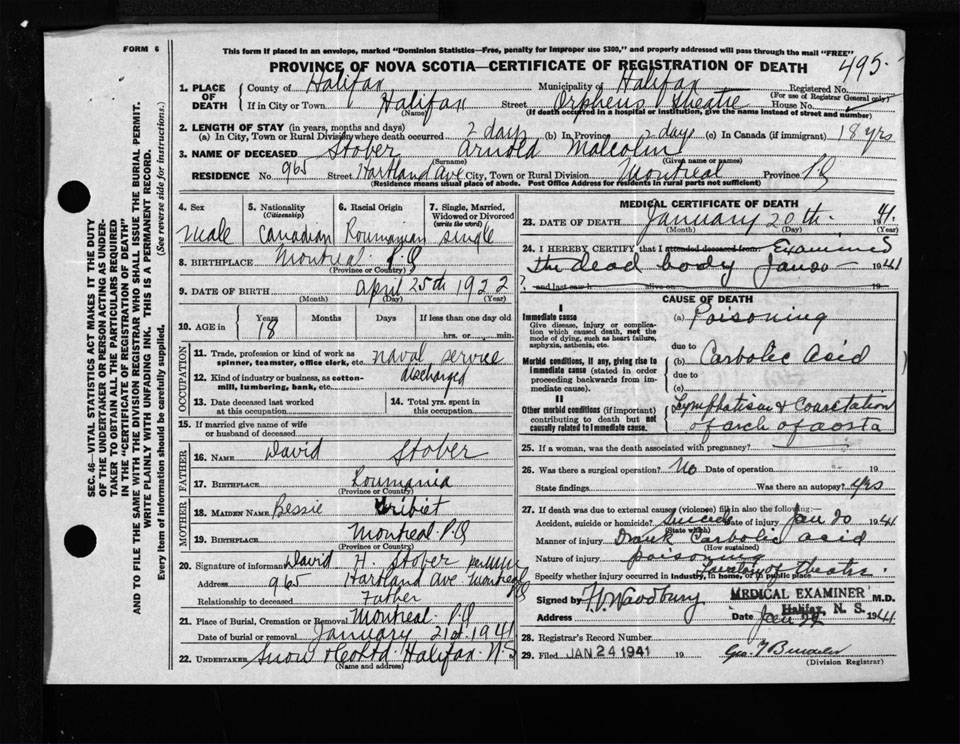 FORM 6
This form if placed in an envelope, marked "Dominion Statistics—Free, penalty for improper use $300," and properly addressed will pass through the mail "FREE"
PROVINCE OF NOVA SCOTIA—CERTIFICATE OF REGISTRATION OF DEATH
495
SEC. 46—VITAL STATISTICS ACT MAKES IT THE DUTY
OF THE UNDERTAKER OR PERSON ACTING AS UNDER-
TAKER TO OBTAIN ALL THE PARTICULARS REQUIRED
IN THE "CERTIFICATE OF REGISTRATION OF DEATH"
AND TO FILE THE SAME WITH THE DIVISION REGISTRAR WHO SHALL ISSUE THE BURIAL PERMIT.
WRITE PLAINLY WITH UNFADING INK. THIS IS A PERMANENT RECORD.
Every item of information should be carefully supplied. (See reverse side for instructions.)
1. PLACE OF DEATH County of Halifax Municipality of Halifax Registered No.
(For use of Registrar General only)
If in City or Town Halifax Street Orpheus Theatre House No.
(Name) (If death occurred in a hospital or institution, give the name instead of street and number)
2. LENGTH OF STAY (in years, months and days)
(a) In City, Town or Rural Division where death occurred 2 days (b) In Province 2 days (c) In Canada (if immigrant) 18 yrs
3. NAME OF DECEASED Stober Arnold Malcolm
(Surname) (Given name or names)
RESIDENCE No. 965 Street Hartland Ave City, Town or Rural Division Montreal Province PQ
(Residence means usual place of abode. Post Office Address for residents in rural parts not sufficient)
4. Sex 5. Nationality (Citizenship) 6. Racial Origin 7. Single, Married, Widowed or Divorced (write the word)
male Canadian Roumanian single
8. BIRTHPLACE Montreal P.Q
(Province or Country)
9. DATE OF BIRTH April 25th 1922
(Month) (Day) (Year)
10. AGE in Years Months Days If less than one day old
18 hrs. or min.
OCCUPATION
11. Trade, profession or kind of work as spinner, teamster, office clerk, etc. naval service
12. Kind of industry or business, as cotton-mill, lumbering, bank, etc. discharged
13. Date deceased last worked at this occupation 14. Total yrs. spent in this occupation
15. If married give name of wife or husband of deceased
FATHER
16. NAME David Stober
17. BIRTHPLACE Roumania
(Province or Country)
MOTHER
18. MAIDEN NAME Bessie
19. BIRTHPLACE Montreal P.Q
(Province or Country)
20. Signature of informant David H. Stober
Address 965 Hartland Ave Montreal
Relationship to deceased Father
21. Place of Burial, Cremation or Removal Montreal P.Q
Date of burial or removal January 21st 1941
22. UNDERTAKER Snow Halifax N.S
(Name and address)
MEDICAL CERTIFICATE OF DEATH
23. DATE OF DEATH January 20th 1941
(Month) (Day) (Year)
24. I HEREBY CERTIFY that I attended deceased from Examined
the dead body Jan 20 1941
and last saw h alive on 19
CAUSE OF DEATH
I
Immediate cause
Give disease, injury or complication which caused death, not the mode of dying, such as heart failure, asphyxia, asthenia, etc.
(a) Poisoning
due to
Morbid conditions, if any, giving rise to immediate cause (stated in order proceeding backwards from immediate cause).
(b) Carbolic Acid
due to
(c)
II
Other morbid conditions (if important) contributing to death but not causally related to immediate cause.
Lymphatism & Coarctation
of arch of aorta
25. If a woman, was the death associated with pregnancy?
26. Was there a surgical operation? No Date of operation 19
State findings Was there an autopsy? yes
27. If death was due to external causes (violence) fill in also the following:—
Accident, suicide or homicide? suicide Date of injury Jan 20 1941
(State which)
Manner of injury Drank Carbolic acid
(How sustained)
Nature of injury poisoning
Specify whether injury occurred in industry, in home, or in public place Lavatory of theatre.
Signed by Woodbury MEDICAL EXAMINER M.D.
Halifax, N. S.
Address Date Jan 1941
28. Registrar's Record Number
29. Filed JAN 24 1941 19
(Division Registrar)